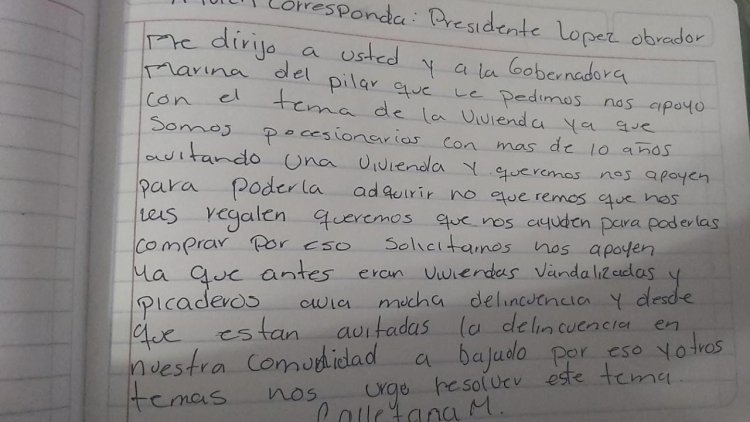 Corresponda: Presidente lopez obrador
Me dirijo a usted y a la Gobernadora
Marina del pilar que Le pedimos nos apoyo
con el tema de la Vivienda ya que
Somos pocesionarios con mas de 10 años
avitando una vivienda y queremos nos apoyen
para poderla adquirir no queremos que nos
las regalen queremos que nos ayuden para poderlas
comprar por eso solicitamos nos apoyen
ya que antes eran viviendas vandalizadas y
picaderos avia mucha delincuencia y desde
que estan avitadas la delincuencia en
nuestra comunidad a bajado por eso y otros
temas nos urge resolver este tema.
M.